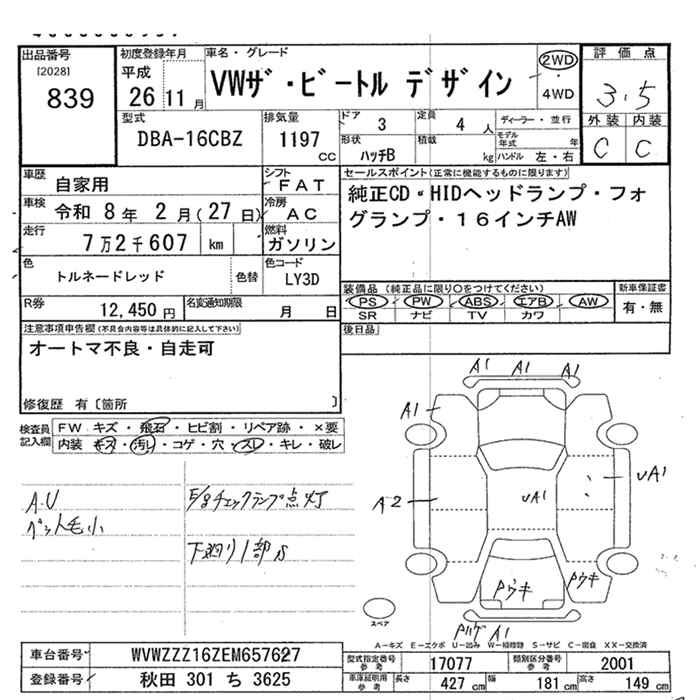 出品番号
[2028]
839
初度登録年月
平成
26 11 月
車名・グレード
VWザ・ビートル デザイン
2WD
・
4WD
評価点
3.5
外装 内装
C C
型式
DBA-16CBZ
排気量
1197
CC
ドア
3
定員
4 人
形状
ハッチB
積載
kg
ディーラー・並行
モデル年式 年
ハンドル 左・右
車歴
自家用
シフト
FAT
車検
令和 8年 2月(27日)
冷房
AC
走行
7万2千607 km
燃料
ガソリン
色
トルネードレッド
色替
色コード
LY3D
R券
12,450 円
名変通知期限
月 日
セールスポイント(正常に機能するものに限ります)
純正CD・HIDヘッドランプ・フォ
グランプ・16インチAW
装備品(純正品に限り○をつけてください)
PS PW ABS エアB AW
SR ナビ TV カワ
新車保証書
有・無
後日品
注意事項申告欄(不具合内容等は具体的に記入して下さい)
オートマ不良・自走可
修復歴 有〔箇所 〕
検査員
記入欄
FW キズ・飛石・ヒビ割・リペア跡・×要
内装 キズ・汚レ・コゲ・穴・スレ・キレ・破レ
A.U
ペット毛小
E/gチェックランプ点灯
下廻り1部S
A1 A1 A1
A1
A2
UA1
UA1
Pウキ
Pウキ
A1
スペア
A-キズ E-エクボ U-凹み W-補修跡 S-サビ C-腐食 XX-交換済
車台番号
WVWZZZ16ZEM657627
登録番号
秋田 301 ち 3625
型式指定番号
参考
17077
類別区分番号
参考
2001
車庫証明用
参考
長さ
427 cm
幅
181 cm
高さ
149 cm